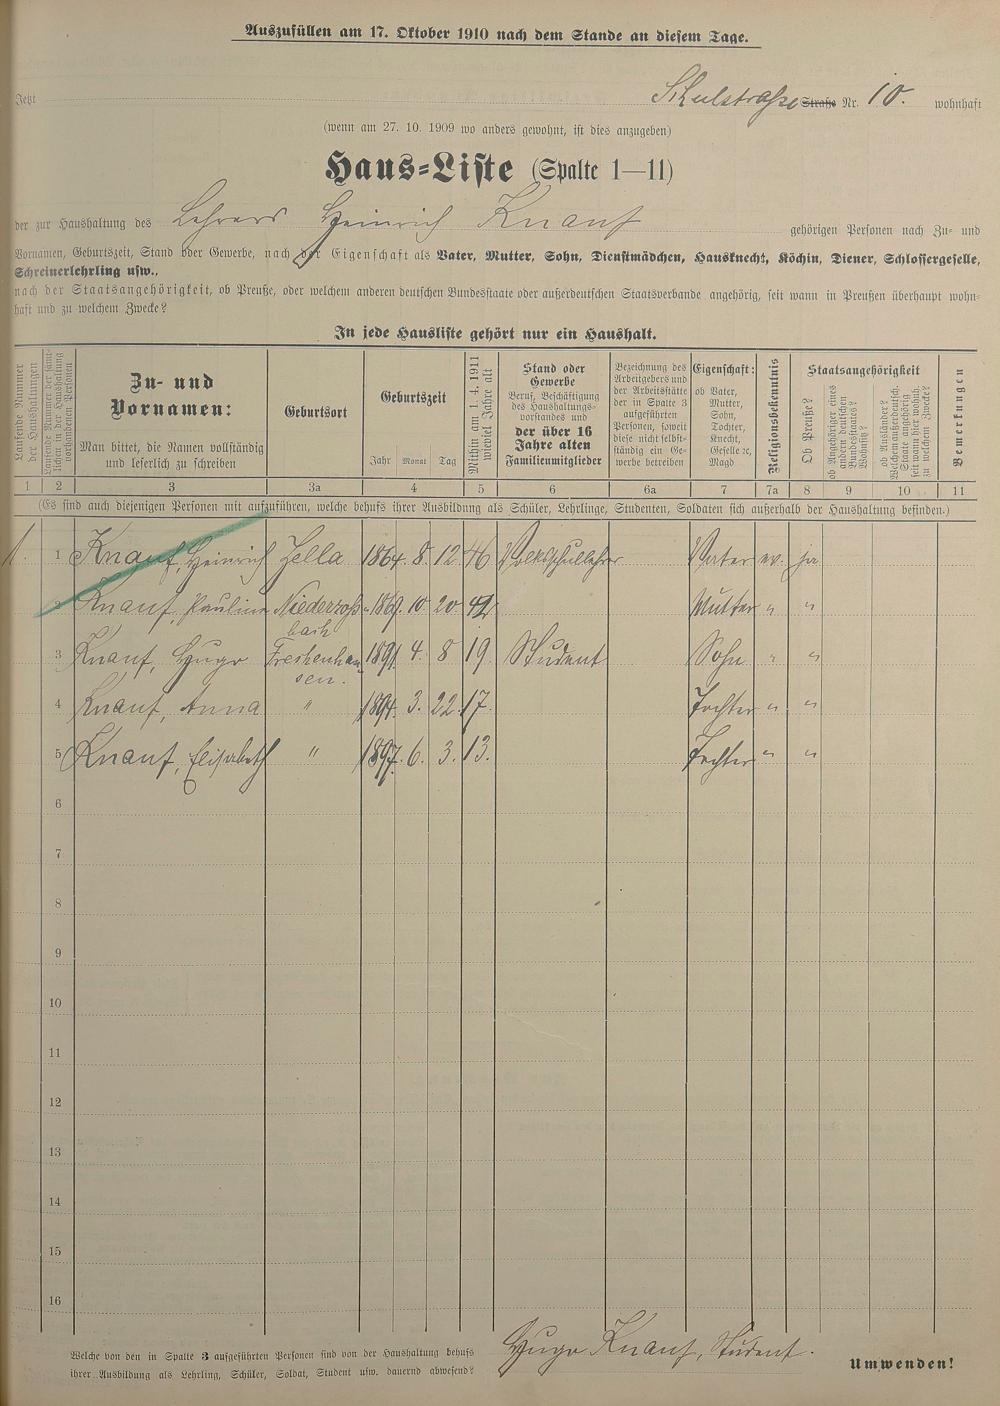 Auszufüllen am 17. Oktober 1910 nach dem Stande an diesem Tage.
Jetzt Schulstraße Straße Nr. 10. wohnhaft
(wenn am 27. 10. 1909 wo anders gewohnt, ist dies anzugeben)
Haus-Liste (Spalte 1—11)
der zur Haushaltung des Lehrers Heinrich Knauf gehörigen Personen nach Zu- und
Vornamen, Geburtszeit, Stand oder Gewerbe, nach der Eigenschaft als Vater, Mutter, Sohn, Dienstmädchen, Hausknecht, Köchin, Diener, Schlossergeselle,
Schreinerlehrling usw.,
nach der Staatsangehörigkeit, ob Preuße, oder welchem anderen deutschen Bundesstaate oder außerdeutschen Staatsverbande angehörig, seit wann in Preußen überhaupt wohn-
haft und zu welchem Zwecke?
In jede Hausliste gehört nur ein Haushalt.
Laufende Nummer
der Haushaltungen
Laufende Nummer der sämt-
lichen in der Haushaltung
vorhandenen Personen
Zu- und
Vornamen:
Man bittet, die Namen vollständig
und leserlich zu schreiben
Geburtsort
Geburtszeit
Jahr Monat Tag
Mithin am 1. 4. 1911
wieviel Jahre alt
Stand oder
Gewerbe
Beruf, Beschäftigung
des Haushaltungs-
vorstandes und
der über 16
Jahre alten
Familienmitglieder
Bezeichnung des
Arbeitgebers und
der Arbeitsstätte
der in Spalte 3
aufgeführten
Personen, soweit
diese nicht selbst-
ständig ein Ge-
werbe betreiben
Eigenschaft:
ob Vater,
Mutter,
Sohn,
Tochter,
Knecht,
Geselle ꝛc,
Magd
Religionsbekenntnis
Staatsangehörigkeit
Ob Preuße?
ob Angehöriger eines
andern deutschen
Bundesstaates?
Wohnsitz?
ob Ausländer?
Welchem außerdeutsch.
Staate angehörig
seit wann hier wohnh.
zu welchem Zwecke?
Bemerkungen
1 2 3 3a 4 5 6 6a 7 7a 8 9 10 11
(Es sind auch diejenigen Personen mit aufzuführen, welche behufs ihrer Ausbildung als Schüler, Lehrlinge, Studenten, Soldaten sich außerhalb der Haushaltung befinden.)
1. 1 Knauf, Heinrich Zella 1864. 8. 12. 46 Volksschullehrer Vater ev. ja
2 Knauf, Pauline Niederross- 1869. 10. 20. 41 Mutter " "
bach
3 Knauf, Hugo Freskenhau- 1891. 4. 8 19. Student Sohn " "
sen.
4 Knauf, Anna " 1894. 3. 22. 17. Tochter " "
5 Knauf, Elisabeth " 1897. 6. 3. 13. Tochter " "
6
7
8
9
10
11
12
13
14
15
16
Welche von den in Spalte 3 aufgeführten Personen sind von der Haushaltung behufs
ihrer Ausbildung als Lehrling, Schüler, Soldat, Student usw. dauernd abwesend?
Hugo Knauf, Student.
Umwenden!